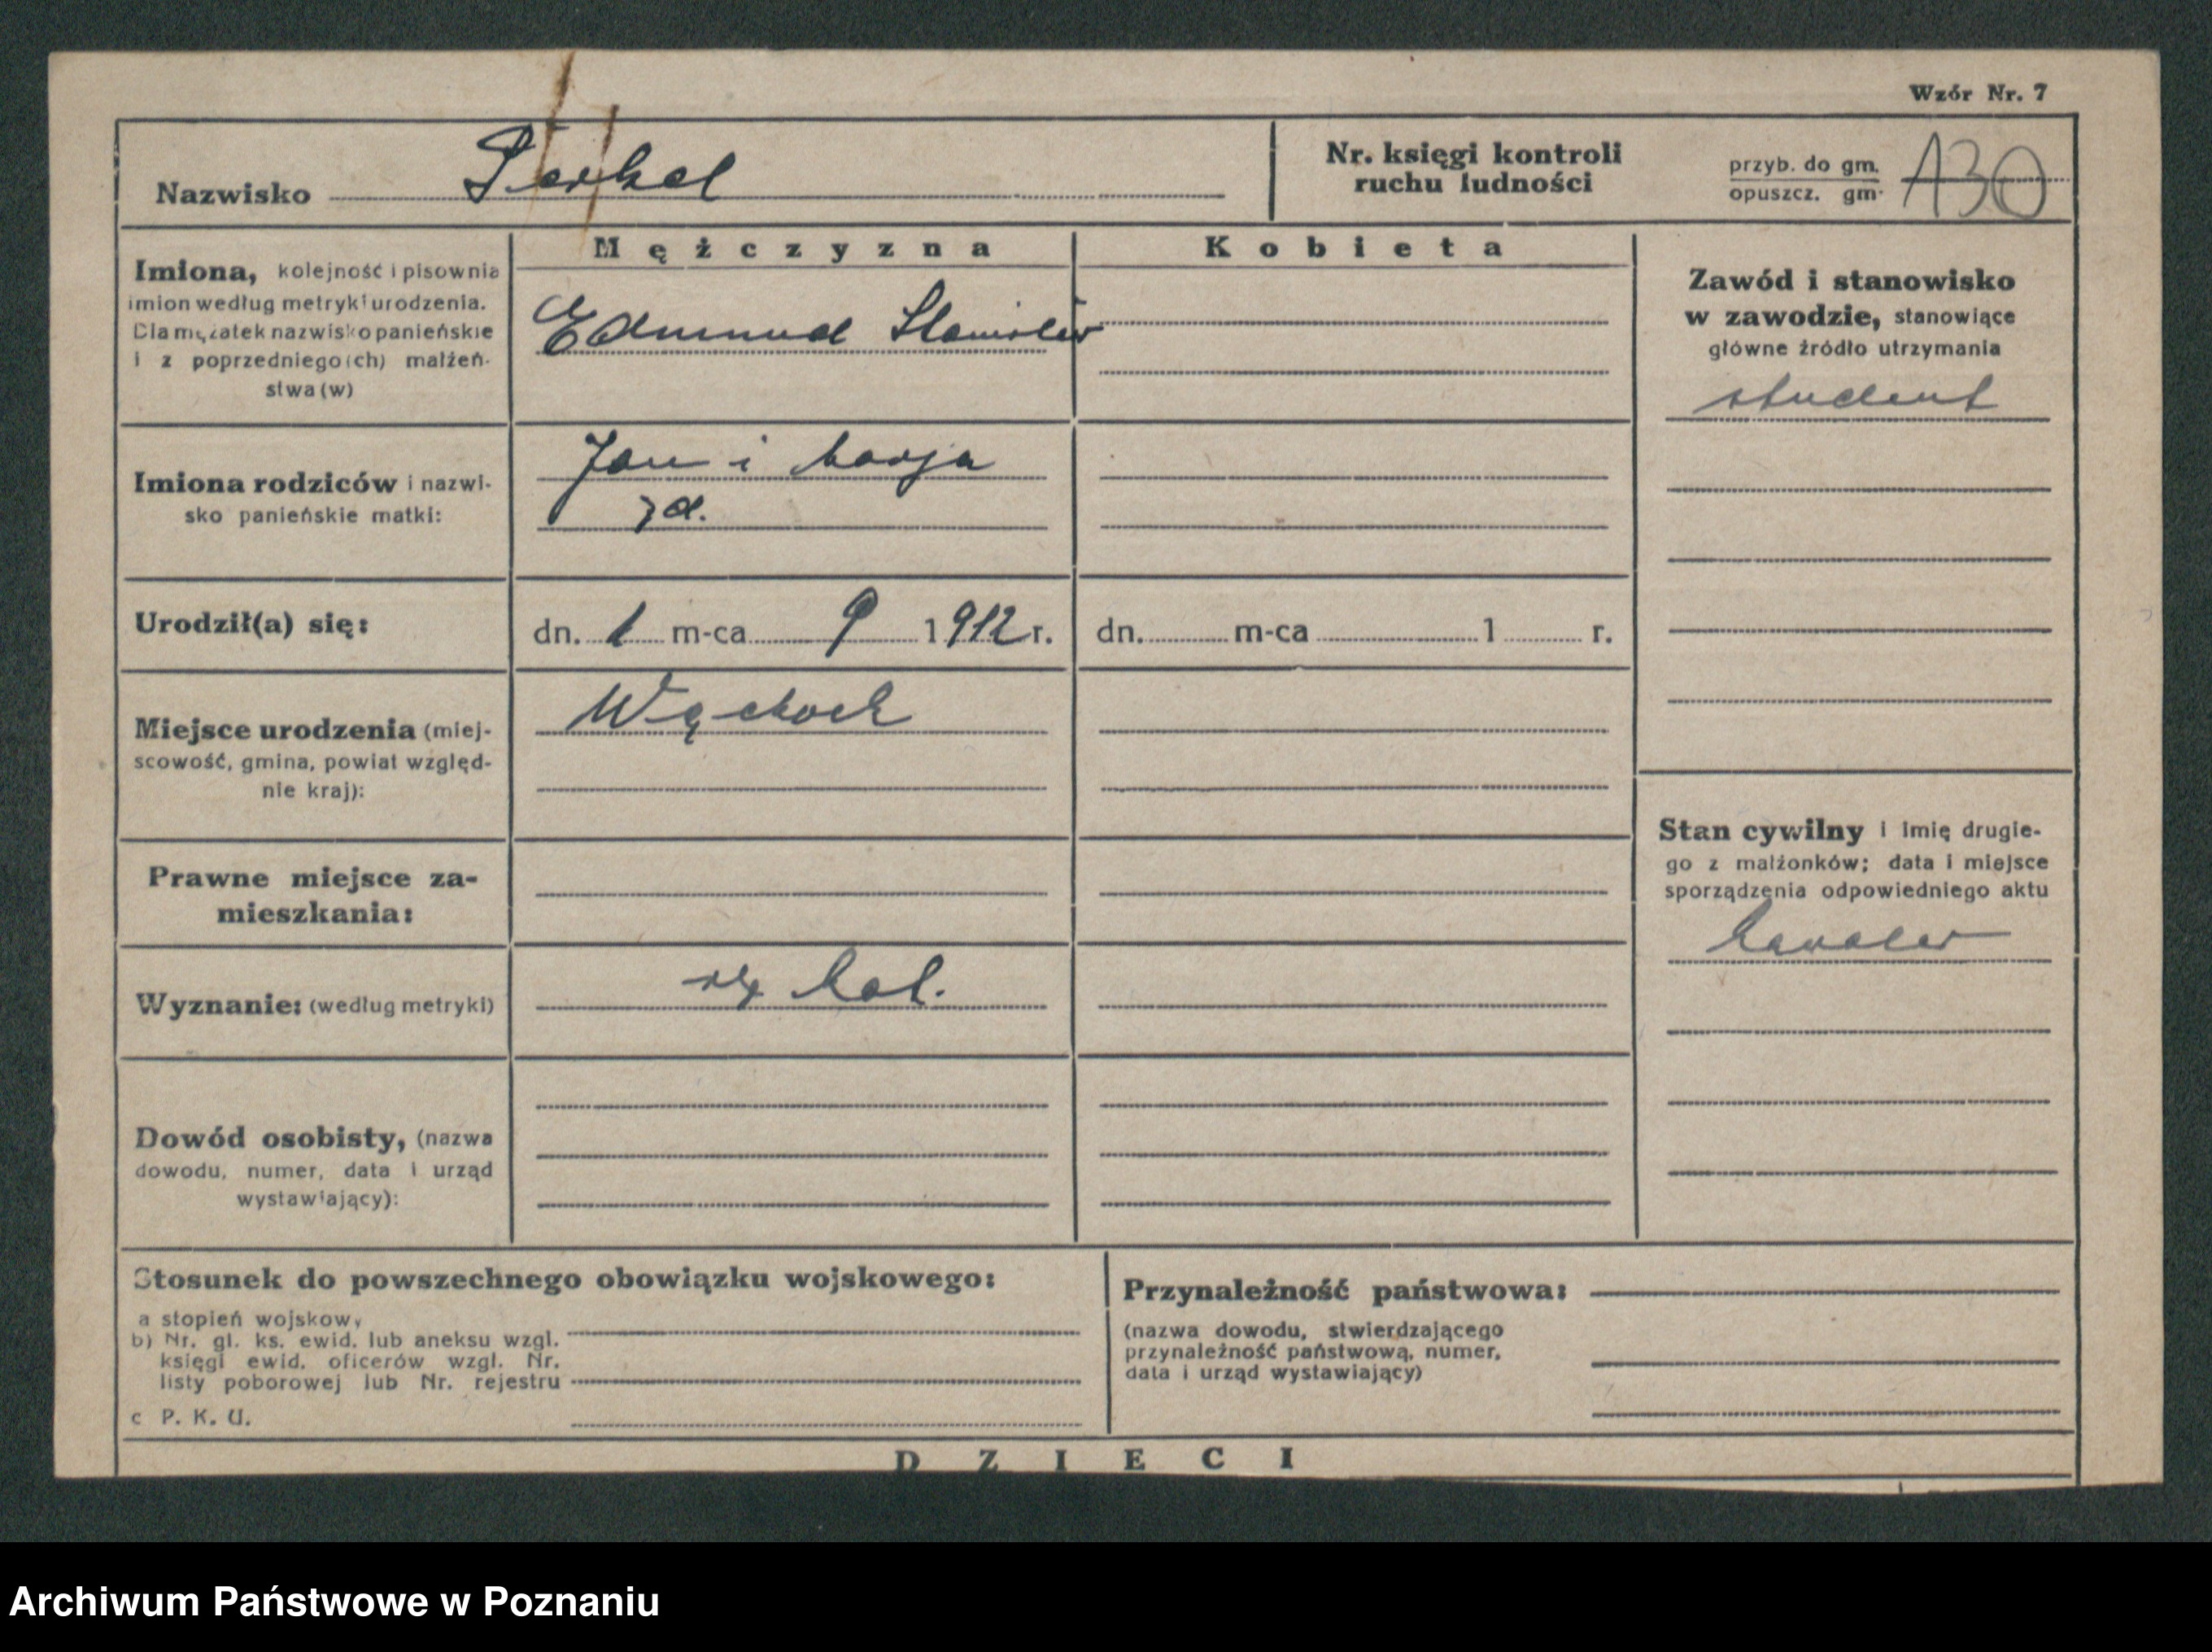 Wzór Nr. 7
Nazwisko Perkel
Nr. księgi kontroli
ruchu ludności
przyb. do gm.
opuszcz. gm.
130
Mężczyzna
Kobieta
Imiona, kolejność i pisownia
imion według metryki urodzenia.
Dla mężatek nazwisko panieńskie
i z poprzedniego(ch) małżeń-
stwa(w)
Edmund Stanisław
Zawód i stanowisko
w zawodzie, stanowiące
główne źródło utrzymania
student
Imiona rodziców i nazwi-
sko panieńskie matki:
Jan i Marja
Urodził(a) się:
dn. 1 m-ca 9 1912 r.
dn. m-ca 1 r.
Miejsce urodzenia (miej-
scowość, gmina, powiat względ-
nie kraj):
Wąchock
Prawne miejsce za-
mieszkania:
Stan cywilny i imię drugie-
go z małżonków; data i miejsce
sporządzenia odpowiedniego aktu
kawaler
Wyznanie: (według metryki)
rz kat.
Dowód osobisty, (nazwa
dowodu, numer, data i urząd
wystawiający):
Stosunek do powszechnego obowiązku wojskowego:
a stopień wojskowy
b) Nr. gl. ks. ewid. lub aneksu wzgl.
księgi ewid. oficerów wzgl. Nr.
listy poborowej lub Nr. rejestru
c P. K. U.
Przynależność państwowa:
(nazwa dowodu, stwierdzającego
przynależność państwową, numer,
data i urząd wystawiający)
DZIECI
Archiwum Państwowe w Poznaniu